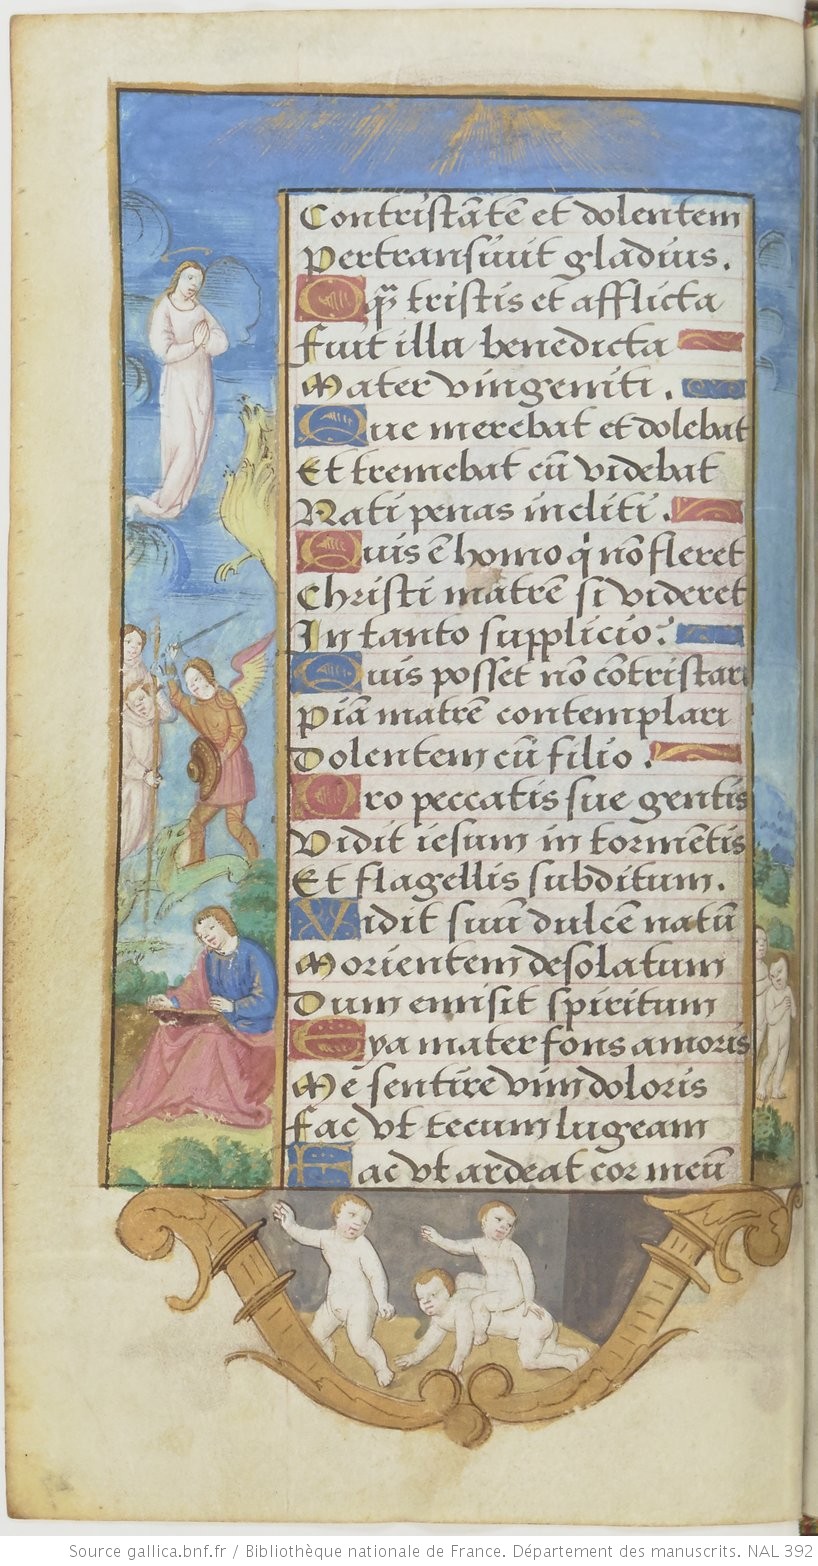 Contristātē et dolentem
Pertransiuit gladius.
O q̄ tristis et afflicta
Fuit illa benedicta
Mater vnigeniti.
Que merebat et dolebat
Et tremebat cū videbat
Nati penas incliti.
Quis ē homo q̇ nō fleret
Christi matrē si videret
In tanto supplicio?
Quis posset nō cōtristari
Piā matrē contemplari
Dolentem cū filio.
Pro peccatis sue gentis
Vidit iesum in tormētis
Et flagellis subditum.
Vidit suū dulcē natū
Morientem desolatum
Dum emisit spiritum
Eya mater fons amoris
Me sentire vim doloris
Fac vt tecum lugeam
Fac vt ardeat cor meū
Source gallica.bnf.fr / Bibliothèque nationale de France. Département des manuscrits. NAL 392